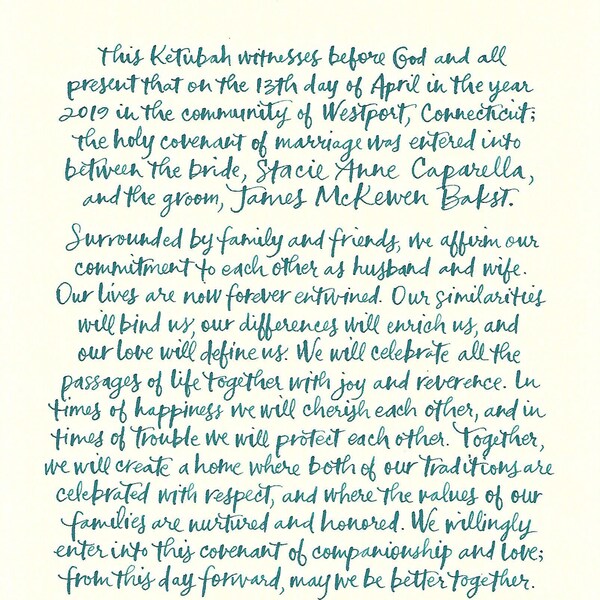 This Ketubah witnesses before God and all
present that on the 13th day of April in the year
2019 in the community of Westport, Connecticut;
the holy covenant of marriage was entered into
between the bride, Stacie Anne Caparella,
and the groom, James McKewen Bakst.
Surrounded by family and friends, we affirm our
commitment to each other as husband and wife.
Our lives are now forever entwined. Our similarities
will bind us, our differences will enrich us, and
our love will define us. We will celebrate all the
passages of life together with joy and reverence. In
times of happiness we will cherish each other, and in
times of trouble we will protect each other. Together,
we will create a home where both of our traditions are
celebrated with respect, and where the values of our
families are nurtured and honored. We willingly
enter into this covenant of companionship and love;
from this day forward, may we be better together.